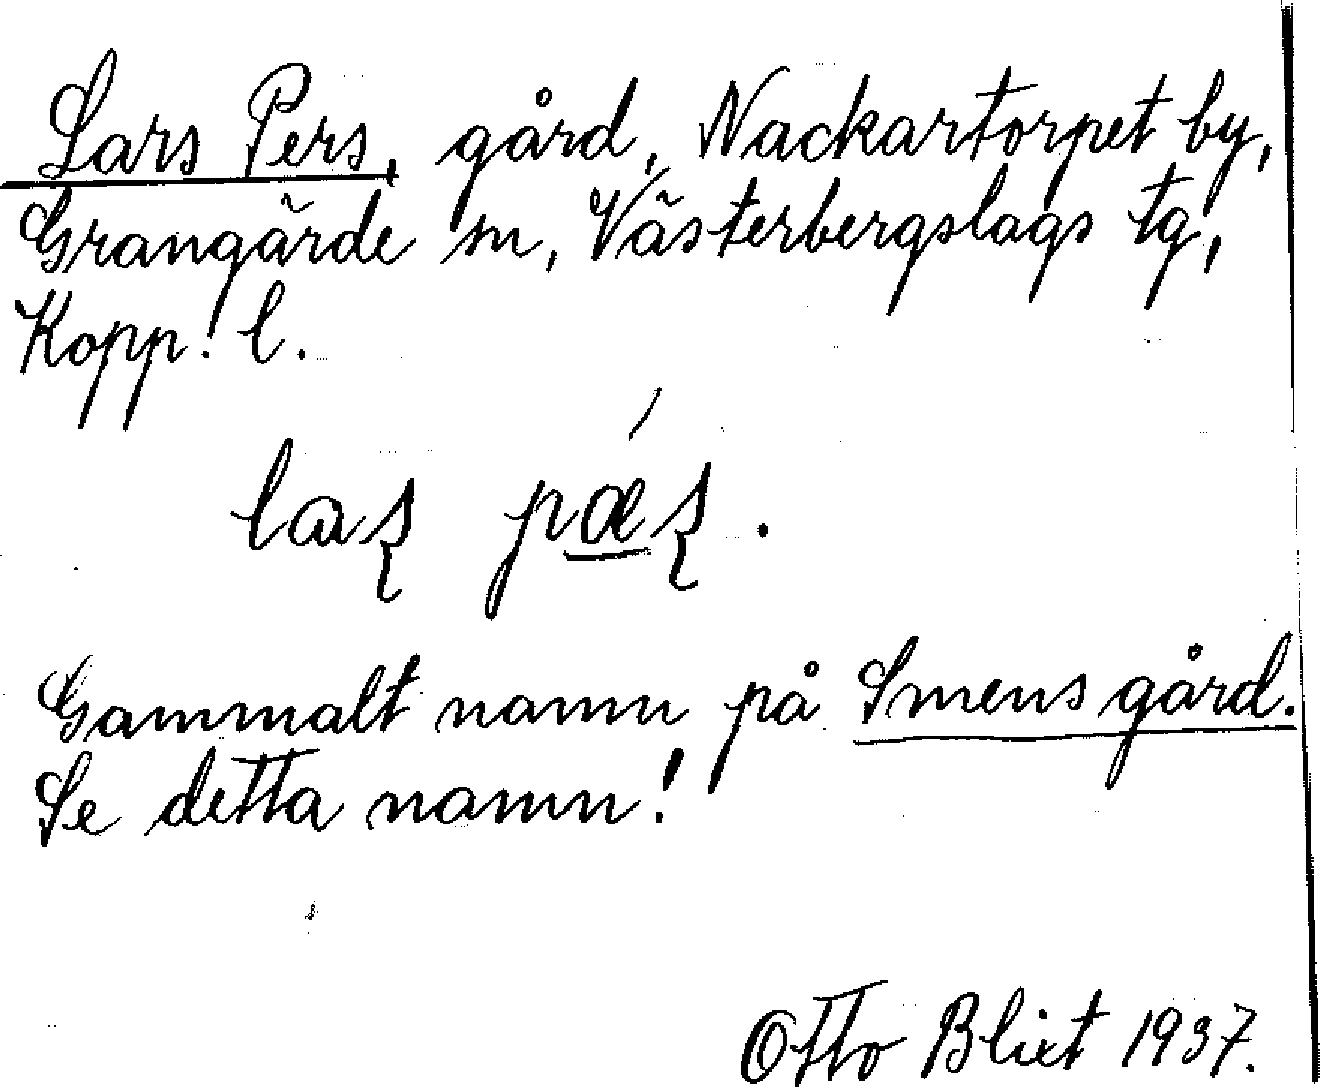 Lars Pers, gård, Nackartorpet by,
Grangärde sn, Västerbergslags tg,
Kopp. l.
laʂ pǽʂ.
Gammalt namn på Smens gård.
Se detta namn!
Otto Blixt 1937.